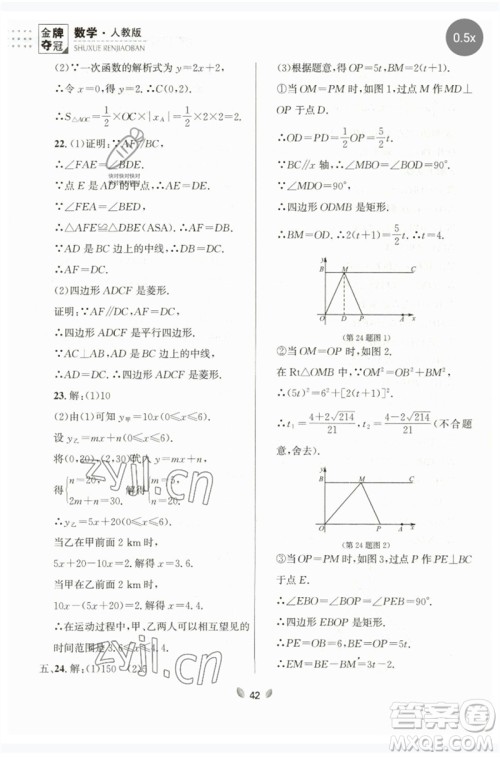 金牌
夺冠
数学·人教版
SHUXUE RENJIAOBAN
0.5x
(2)∵一次函数的解析式为 y=x+2,
∴令 x=0,得 y=2. ∴C(0,2).
∴S△AOC=1/2×OC×|xA|=1/2×2×2=2.
22. (1)证明:∵AF∥BC,
∴∠FAE=∠BDE.
∵点 E 是 AD 的中点,∴AE=DE.
∵∠FEA=∠BED,
∴△AFE≌△DBE(ASA). ∴AF=DB.
∵AD 是 BC 边上的中线,∴DB=DC.
∴AF=DC.
(2)四边形 ADCF 是菱形.
证明:∵AF∥DC,AF=DC,
∴四边形 ADCF 是平行四边形.
∵AC⊥AB,AD 是 BC 边上的中线,
∴AD=DC. ∴四边形 ADCF 是菱形.
23. 解:(1)10
(2)由(1)可知 y甲=10x(0≤x≤6).
设 y乙=mx+n(0≤x≤6).
将(0,20),(2,30)代入,
得{n=20, 2m+n=30. 解得{m=5, n=20.
∴y乙=5x+20(0≤x≤6).
当乙在甲前面 2 km 时,
5x+20-10x=2. 解得 x=3.6.
当甲在乙前面 2 km 时,
10x-(5x+20)=2. 解得 x=4.4.
∴在运动过程中,甲、乙两人可以相互望见
时 x 的范围是3.6≤x≤4.4
五、24. 解:(1)150 (2)5
(3)根据题意,得 OP=5t,BM=t+1.
①当 OM=PM 时,如图 1,作 MD⊥
OP 于点 D.
∴OD=PD=1/2 OP=5/2 t.
∵BC∥x 轴,∴∠MBO=∠BOP=90°.
∴四边形 ODMB 是矩形.
∴OD=BM. ∴2(t+1)=5t. ∴t=2/3.
y
B
M
C
O
D
P
A
x
(第 24 题图 1)
②当 OM=OP 时,如图 2.
在 Rt△OMB 中,OM²=OB²+BM²,
∴(5t)²=6²+[2(t+1)]².
∴t₁=(4+2√214)/21,t₂=(4-2√214)/21(不合题
意,舍去).
y
B
M
C
O
P
A
x
(第 24 题图 2)
③当 OP=PM 时,如图 3,作 PE⊥BC
于点 E.
∴∠EBO=∠BOP=∠BEP=90°.
∴四边形 EBOP 是矩形.
∴BE=OP=5t.
42
快对快对快对
zyjl.cn
zyjl.cn
答案圈
MXQE.COM